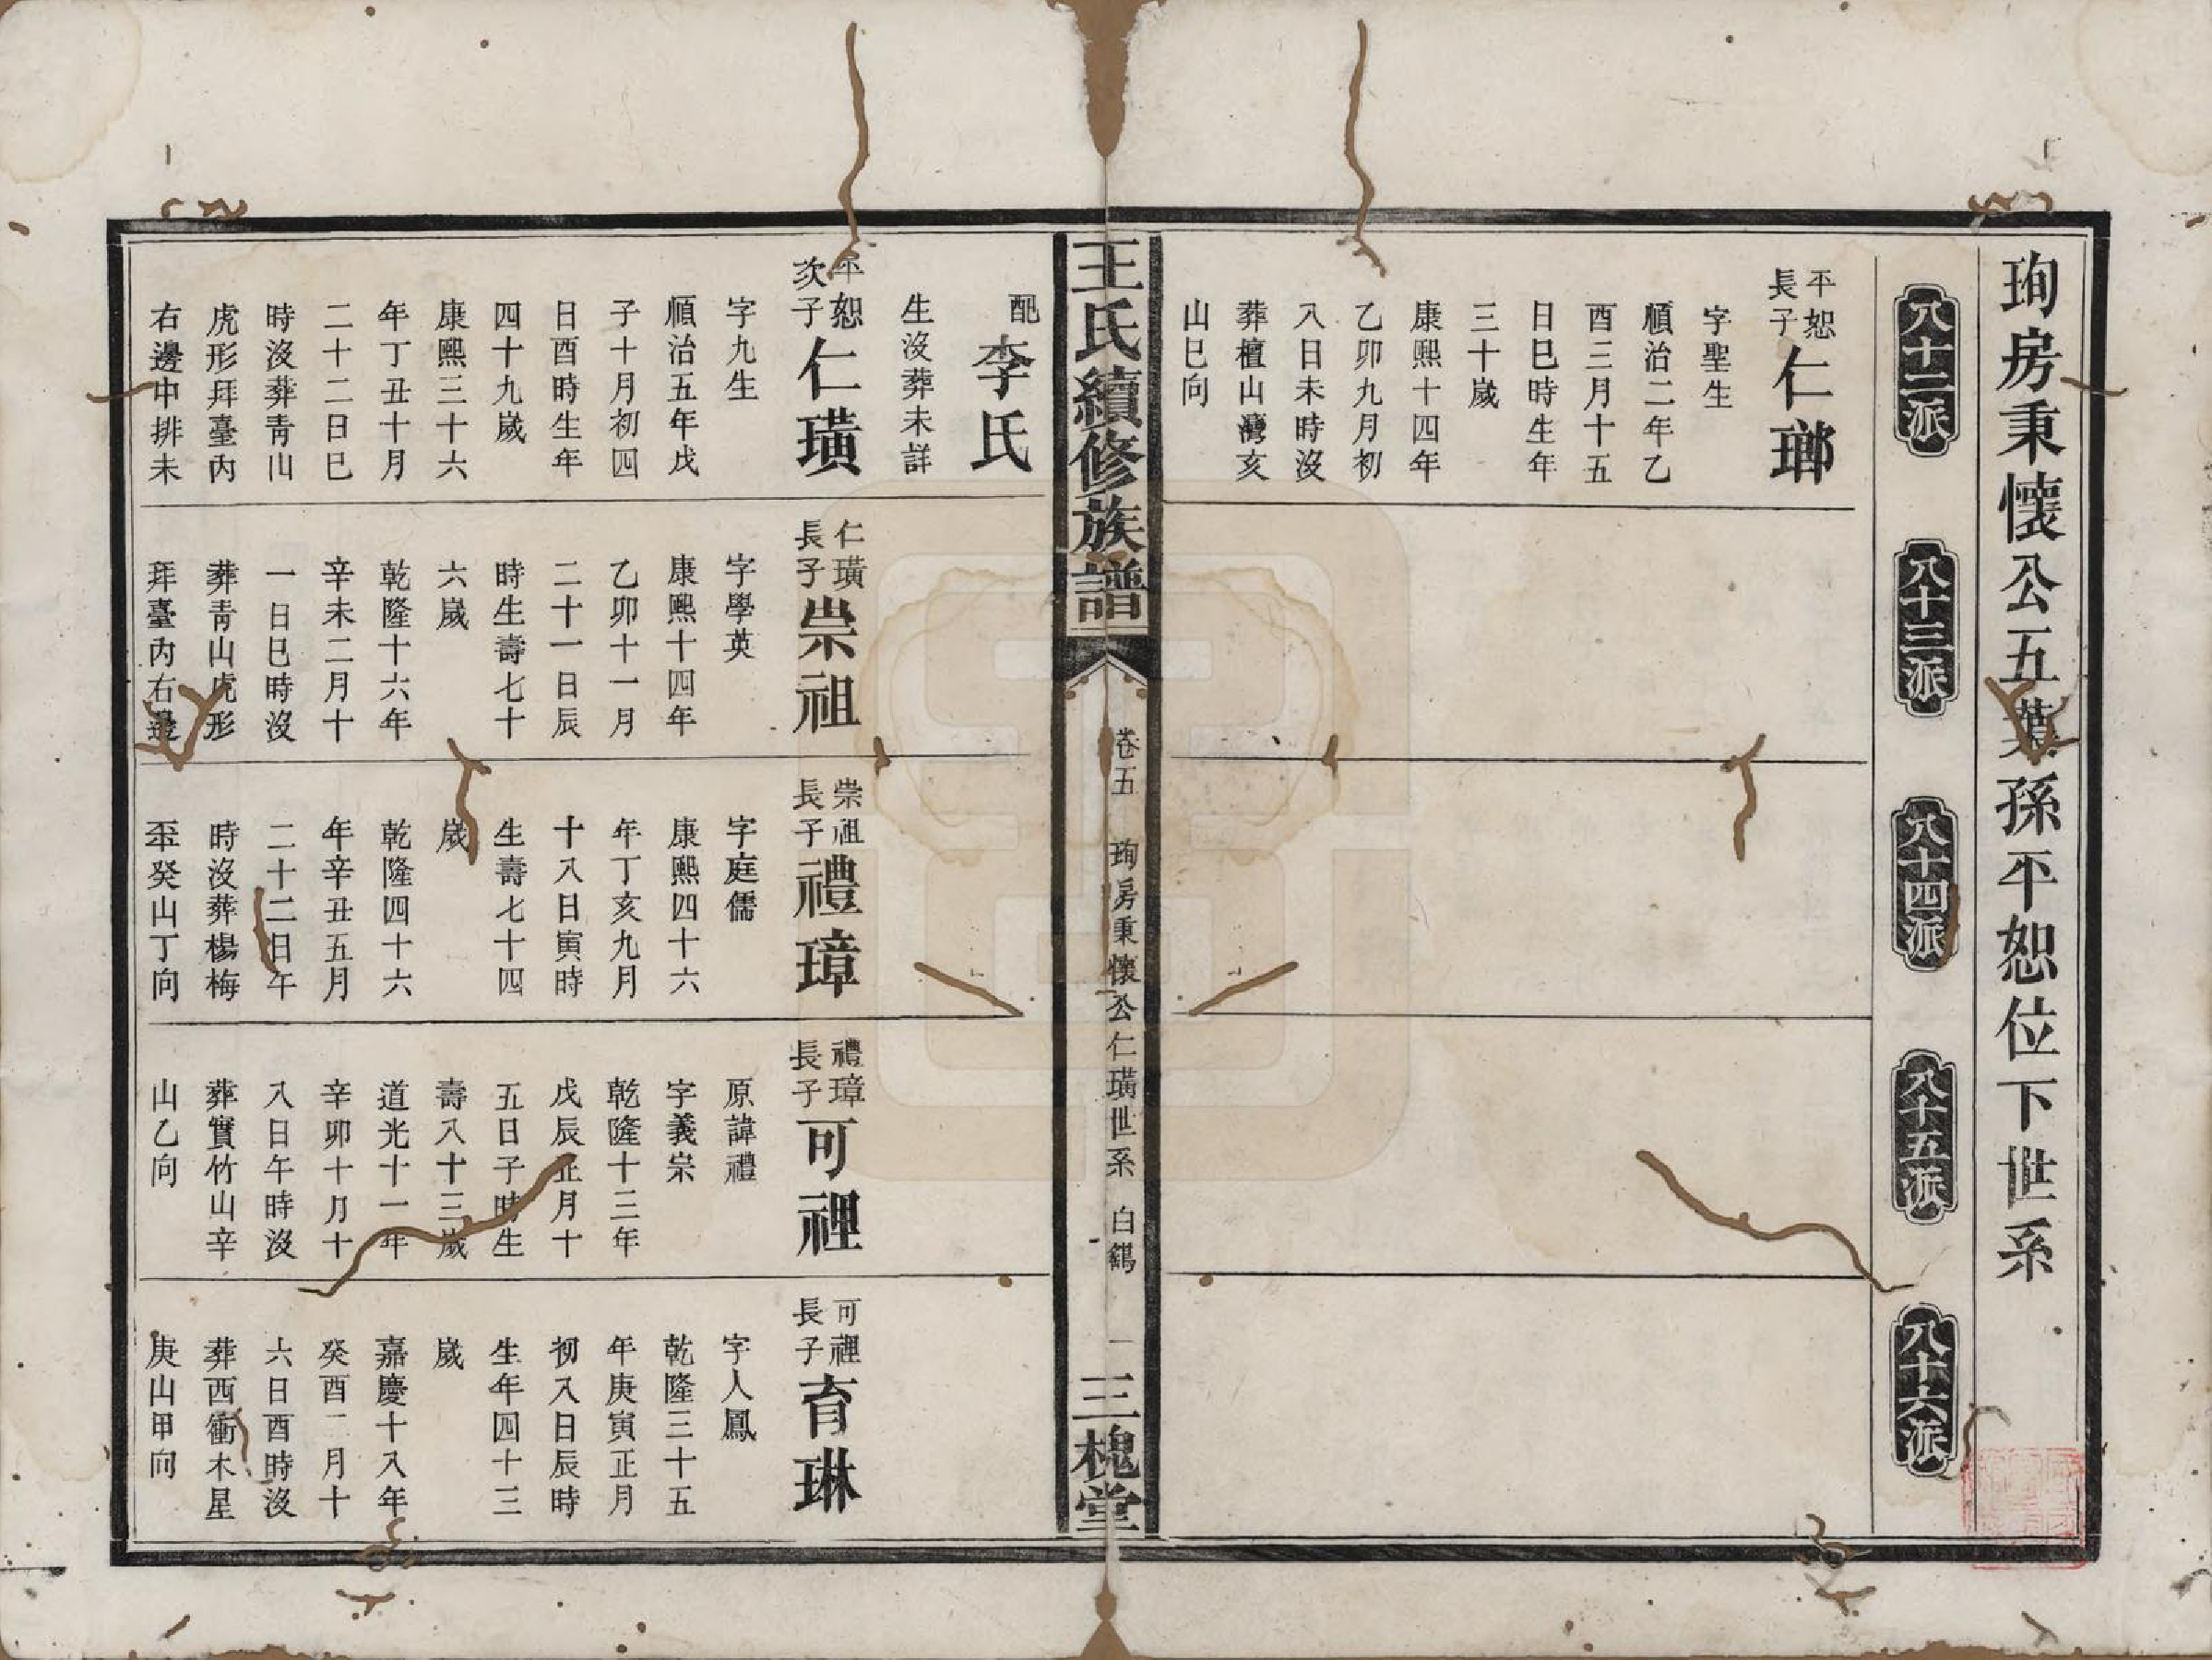 珣房秉懷公五葉孫平恕位下世系
八十二派
八十三派
八十四派
八十五派
八十六派
平恕
長子
仁瑯
字聖生
順治二年乙
酉三月十五
日巳時生年
三十歲
康熙十四年
乙卯九月初
八日未時沒
葬檀山灣亥
山巳向
王氏續修族譜
卷五
珣房秉懷公仁璜世系
白鶴
一
三槐堂
配
李氏
生沒葬未詳
平恕
次子
仁璜
字九生
順治五年戊
子十月初四
日酉時生年
四十九歲
康熙三十六
年丁丑十月
二十二日巳
時沒葬青山
虎形拜臺內
右邊中排未
仁璜
長子
崇祖
字學英
康熙十四年
乙卯十一月
二十一日辰
時生壽七十
六歲
乾隆十六年
辛未二月十
一日巳時沒
葬青山虎形
拜臺內右邊
崇祖
長子
禮璋
字庭儒
康熙四十六
年丁亥九月
十八日寅時
生壽七十四
歲
乾隆四十六
年辛丑五月
二十二日午
時沒葬楊梅
坪癸山丁向
禮璋
長子
可禋
原諱禮
字義崇
乾隆十三年
戊辰正月十
五日子時生
壽八十三歲
道光十一年
辛卯十月十
八日午時沒
葬實竹山辛
山乙向
可禋
長子
育琳
字人鳳
乾隆三十五
年庚寅正月
初八日辰時
生年四十三
歲
嘉慶十八年
癸酉二月十
六日酉時沒
葬西衝木星
庚山甲向